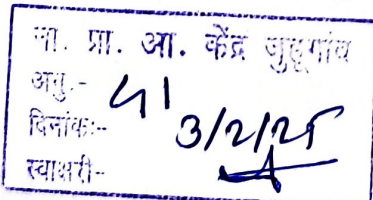 ना. प्रा. आ. केंद्र जुहूगांव
अनु.-
दिनांक:- 3/2/25
स्वाक्षरी-